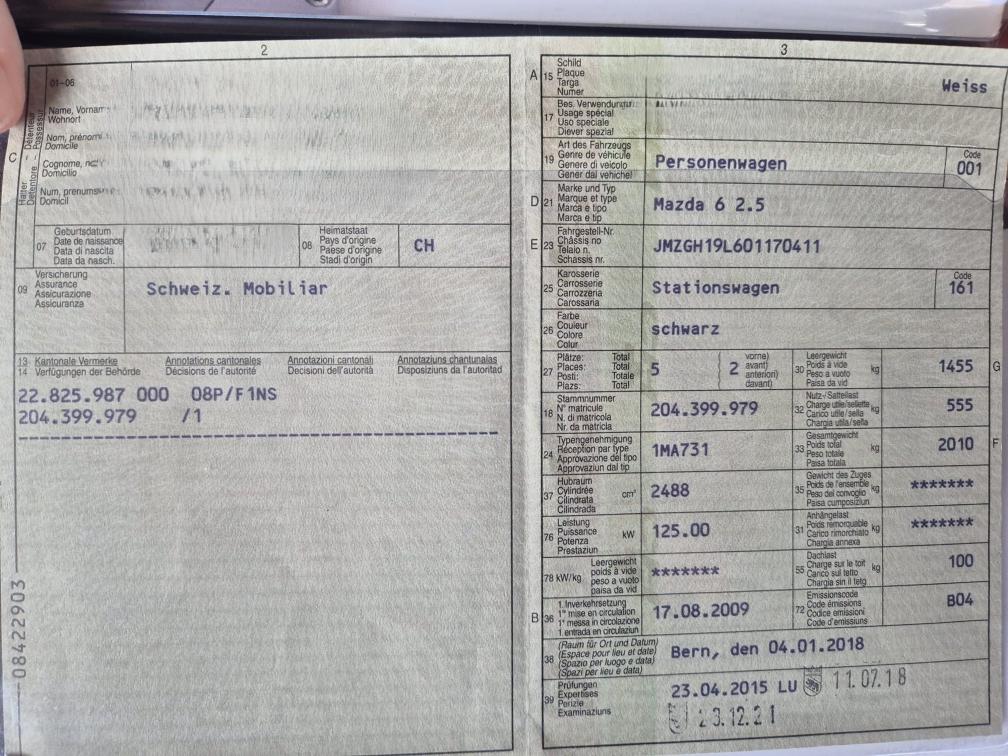 2
01-06
C
Halter Détenteur
Detentore Possessur
Name, Vorname
Wohnort
Nom, prénoms
Domicile
Cognome, nomi
Domicilio
Num, prenums
Domicil
07
Geburtsdatum
Date de naissance
Data di nascita
Data da nasch.
08
Heimatstaat
Pays d'origine
Paese d'origine
Stadi d'origin
CH
09
Versicherung
Assurance
Assicurazione
Assicuranza
Schweiz. Mobiliar
13 Kantonale Vermerke Annotations cantonales Annotazioni cantonali Annotaziuns chantunalas
14 Verfügungen der Behörde Décisions de l'autorité Decisioni dell'autorità Disposiziuns da l'autoritad
22.825.987 000 08P/F1NS
204.399.979 /1
08422903
3
A 15
Schild
Plaque
Targa
Numer
Weiss
17
Bes. Verwendung
Usage spécial
Uso speciale
Diever spezial
19
Art des Fahrzeugs
Genre de véhicule
Genere di veicolo
Gener dal vehichel
Personenwagen
Code
001
D 21
Marke und Typ
Marque et type
Marca e tipo
Marca e tip
Mazda 6 2.5
E 23
Fahrgestell-Nr.
Châssis no
Telaio n.
Schassis nr.
JMZGH19L601170411
25
Karosserie
Carrosserie
Carrozzeria
Carossaria
Stationswagen
Code
161
26
Farbe
Couleur
Colore
Colur
schwarz
27
Plätze: Total
Places: Total
Posti: Totale
Plazs: Total
5
2
vorne)
avant)
anteriori)
davant)
30
Leergewicht
Poids à vide
Peso a vuoto
Paisa da vid
kg
1455
G
18
Stammnummer
N° matricule
N. di matricola
Nr. da matricla
204.399.979
32
Nutz-/Sattellast
Charge utile/sellette
Carico utile/sella
Chargia utila/sella
kg
555
24
Typengenehmigung
Réception par type
Approvazione del tipo
Approvaziun dal tip
1MA731
33
Gesamtgewicht
Poids total
Peso totale
Paisa totala
kg
2010
F
37
Hubraum
Cylindrée
Cilindrata
Cilindrada
cm³
2488
35
Gewicht des Zuges
Poids de l'ensemble
Peso del convoglio
Paisa cumposiziun
kg
*******
76
Leistung
Puissance
Potenza
Prestaziun
kW
125.00
31
Anhängelast
Poids remorquable
Carico rimorchiato
Chargia annexa
kg
*******
78 kW/kg
Leergewicht
poids à vide
peso a vuoto
paisa da vid
*******
55
Dachlast
Charge sur le toit
Carico sul tetto
Chargia sin il tetg
kg
100
B 36
1. Inverkehrsetzung
1re mise en circulation
1a messa in circolazione
1. entrada en circulaziun
17.08.2009
72
Emissionscode
Code émissions
Codice emissioni
Code d'emissiuns
B04
38
(Raum für Ort und Datum)
(Espace pour lieu et date)
(Spazio per luogo e data)
(Spazi per lieu e data)
Bern, den 04.01.2018
39
Prüfungen
Expertises
Perizie
Examinaziuns
23.04.2015 LU 11.07.18
23.12.21